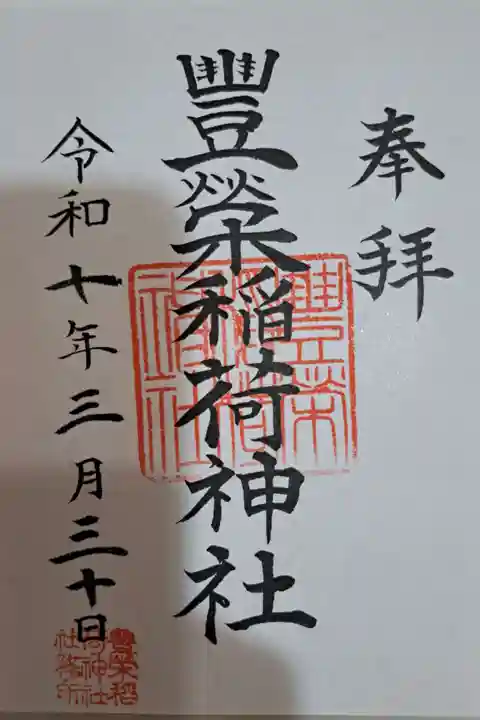 奉拝
豐榮稲荷神社
令和十年三月三十日
豊栄稲荷神社
豊栄稲荷神社務所印